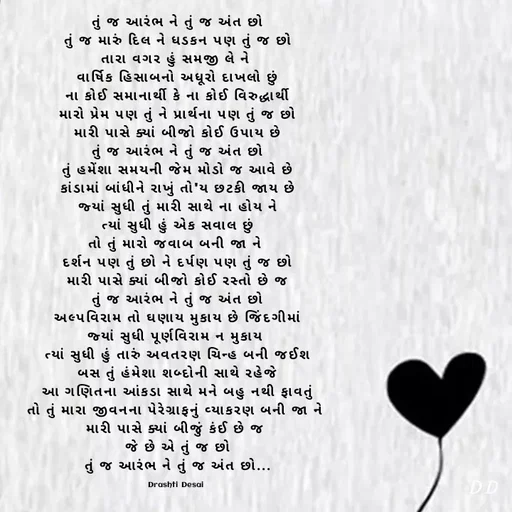 તું જ આરંભ ને તું જ અંત છો
તું જ મારું દિલ ને ધડકન પણ તું જ છો
તારા વગર હું સમજી લે ને
વાર્ષિક હિસાબનો અધૂરો દાખલો છું
ના કોઈ સમાનાર્થી કે ના કોઈ વિરુદ્ધાર્થી
મારો પ્રેમ પણ તું ને પ્રાર્થના પણ તું જ છો
મારી પાસે ક્યાં બીજો કોઈ ઉપાય છે
તું જ આરંભ ને તું જ અંત છો
તું હમેંશા સમયની જેમ મોડો જ આવે છે
કાંડામાં બાંધીને રાખું તો'ય છટકી જાય છે
જ્યાં સુધી તું મારી સાથે ના હોય ને
ત્યાં સુધી હું એક સવાલ છું
તો તું મારો જવાબ બની જા ને
દર્શન પણ તું છો ને દર્પણ પણ તું જ છો
મારી પાસે ક્યાં બીજો કોઈ રસ્તો છે જ
તું જ આરંભ ને તું જ અંત છો
અલ્પવિરામ તો ઘણાય મુકાય છે જિંદગીમાં
જ્યાં સુધી પૂર્ણવિરામ ન મુકાય
ત્યાં સુધી હું તારું અવતરણ ચિન્હ બની જઈશ
બસ તું હંમેશા શબ્દોની સાથે રહેજે
આ ગણિતના આંકડા સાથે મને બહુ નથી ફાવતું
તો તું મારા જીવનના પેરેગ્રાફનું વ્યાકરણ બની જા ને
મારી પાસે ક્યાં બીજું કંઈ છે જ
જે છે એ તું જ છો
તું જ આરંભ ને તું જ અંત છો...
Drashti Desai
D D